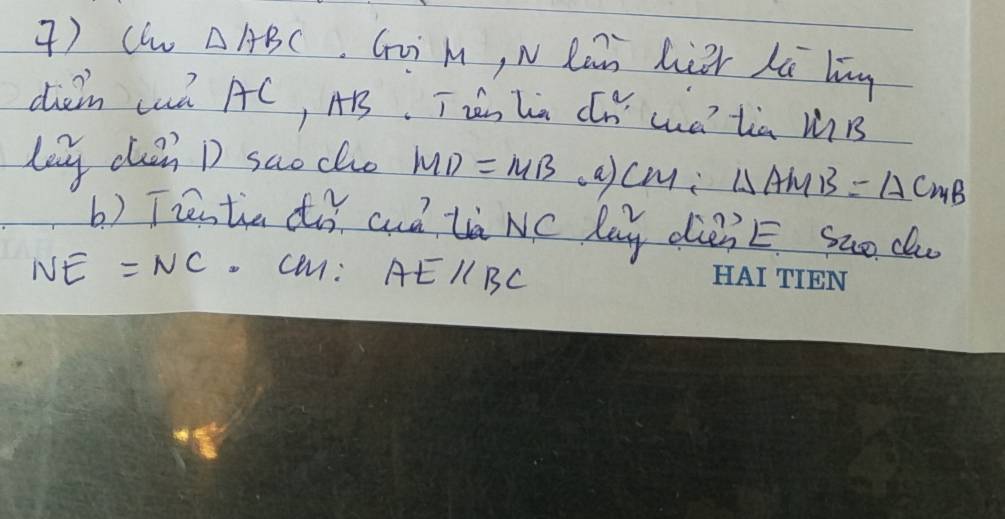 7) Cho ΔABC. Gọi M, N lần lượt là trung
điểm của AC, AB. Trên tia đối của tia MB
lấy điểm D sao cho MD = MB. a) CM: ΔAMB = ΔCMB
b) Trên tia đối của tia NC lấy điểm E sao cho
NE = NC. CM: AE // BC
HAI TIEN